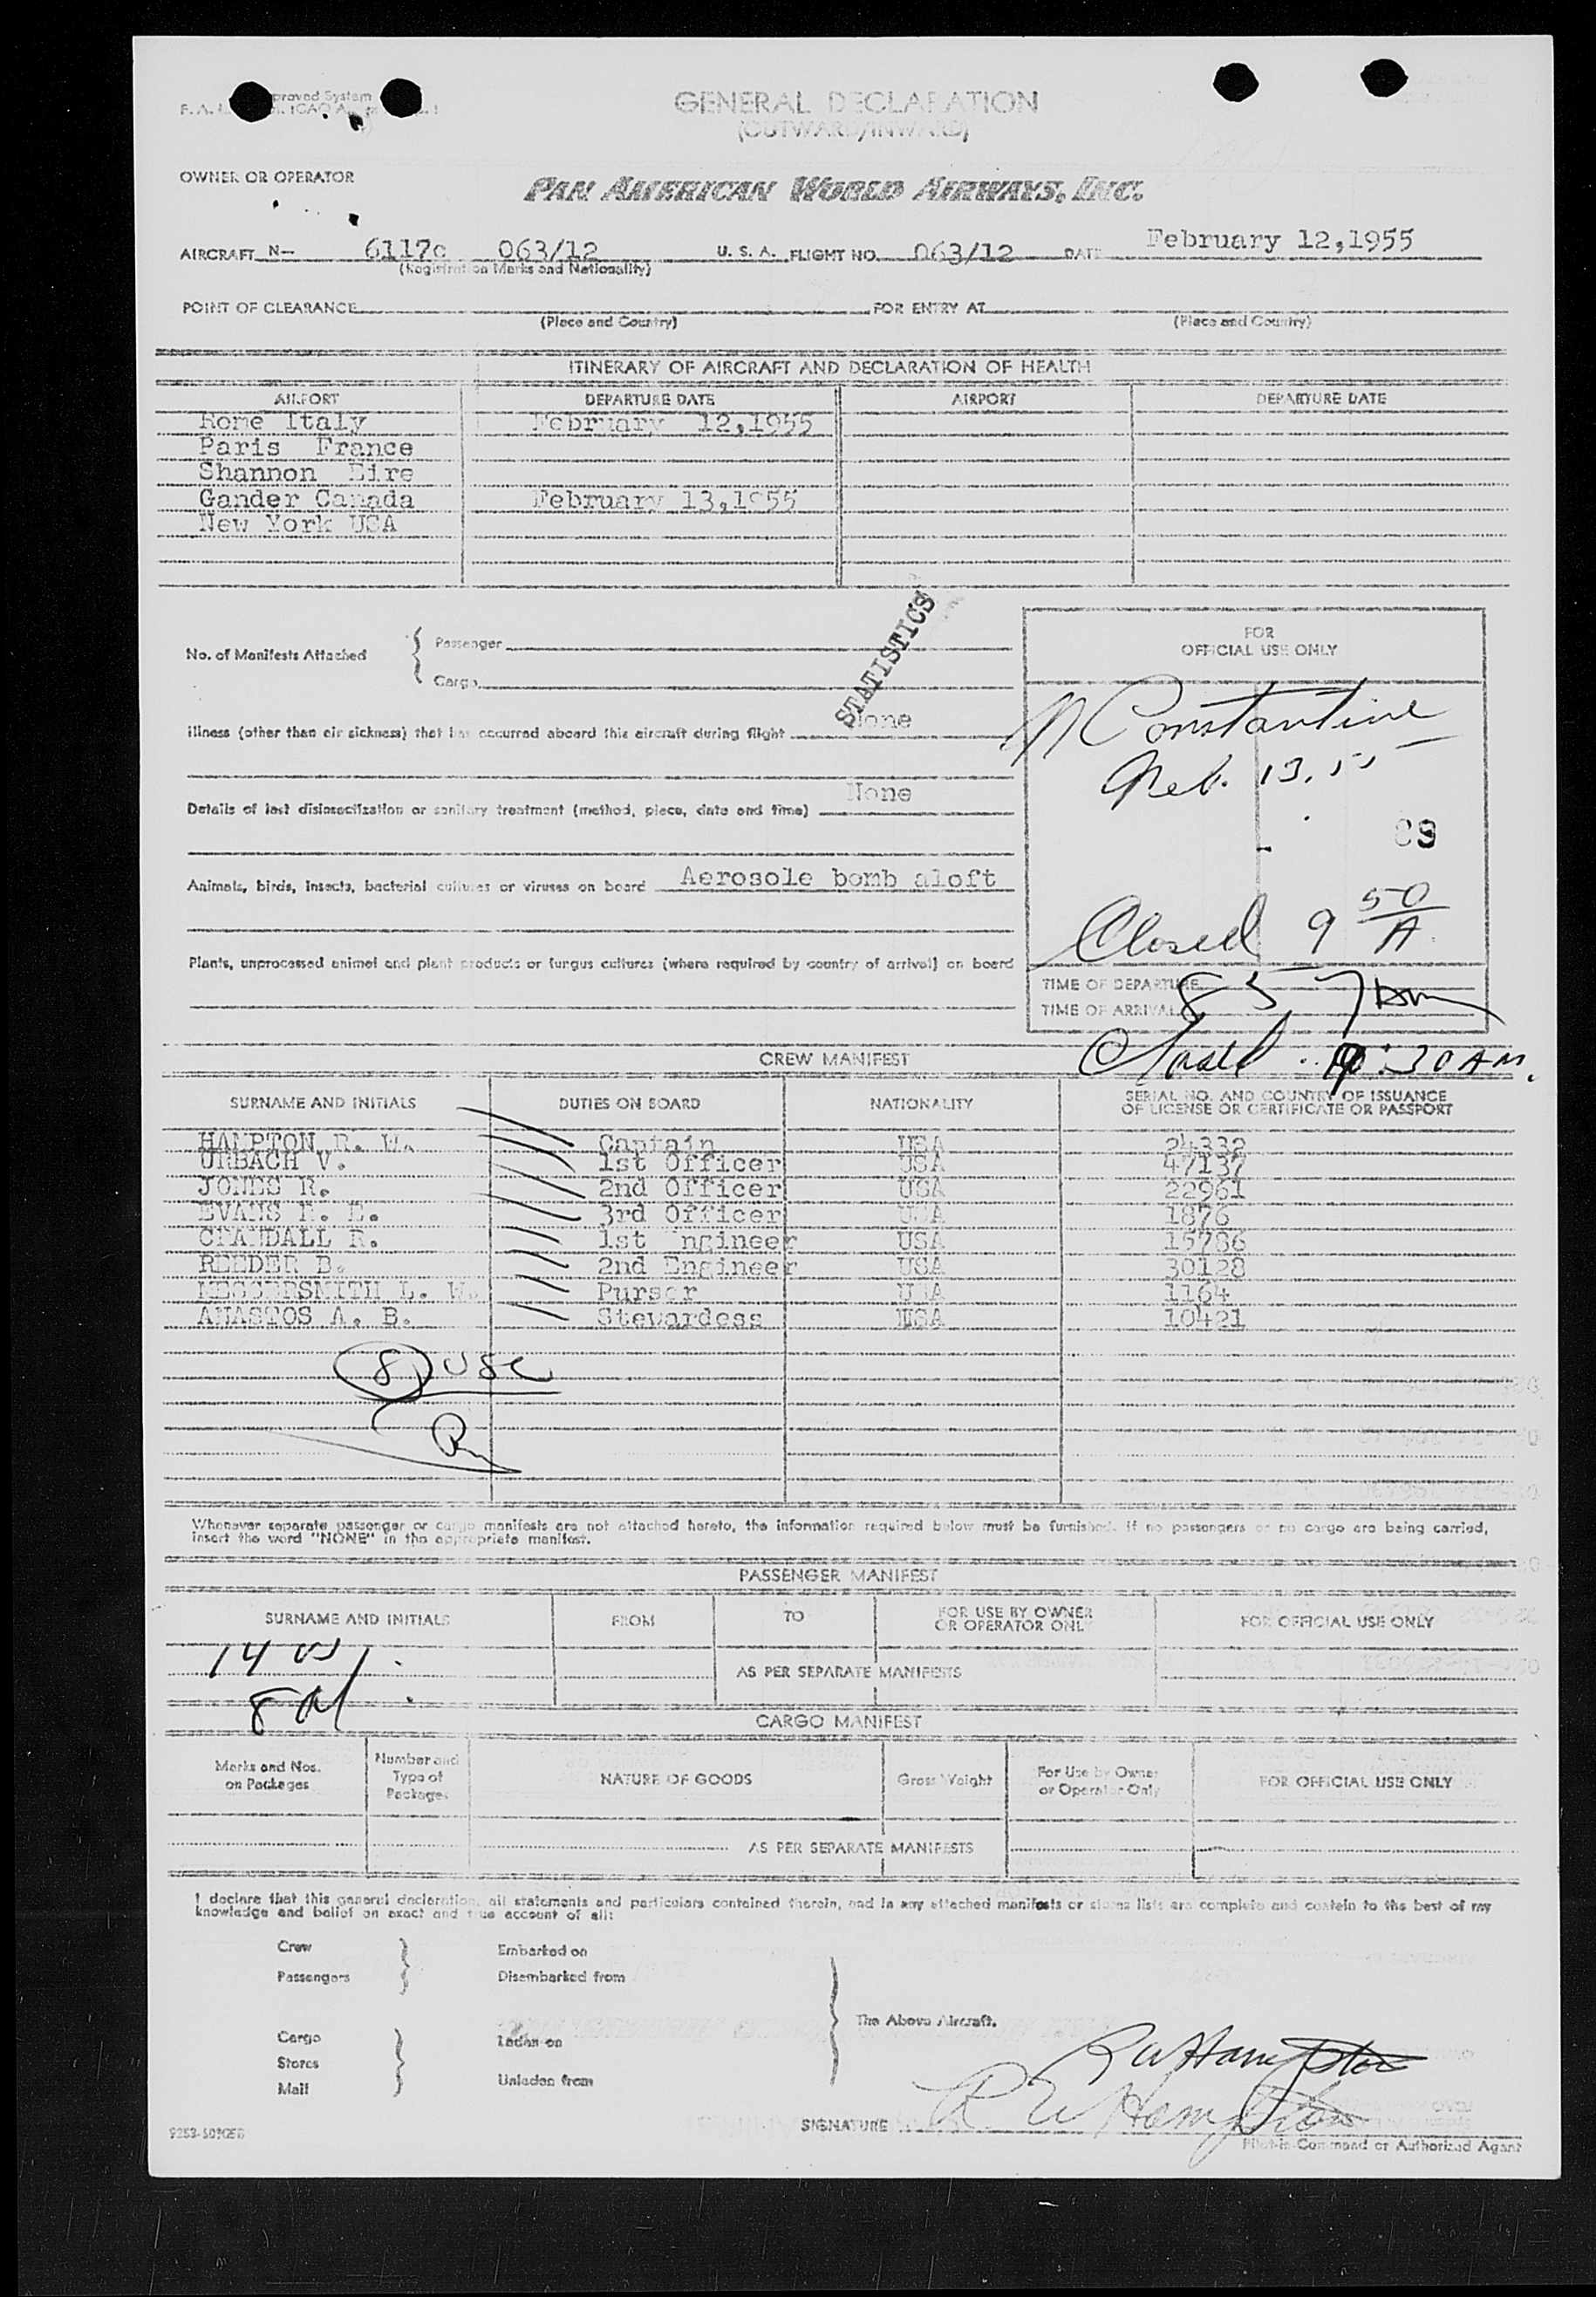 GENERAL DECLARATION
(OUTWARD/INWARD)
OWNER OR OPERATOR
PAN AMERICAN WORLD AIRWAYS, INC.
AIRCRAFT N- 6117c 063/12 U. S. A. FLIGHT NO. 063/12 DATE February 12,1955
(Registration Marks and Nationality)
POINT OF CLEARANCE FOR ENTRY AT
(Place and Country) (Place and Country)
ITINERARY OF AIRCRAFT AND DECLARATION OF HEALTH
AIRPORT DEPARTURE DATE AIRPORT DEPARTURE DATE
Rome Italy February 12,1955
Paris France
Shannon Eire
Gander Canada February 13,1955
New York USA
STATISTICS
No. of Manifests Attached
Passenger
Cargo
FOR
OFFICIAL USE ONLY
Illness (other than air sickness) that has occurred aboard this aircraft during flight None
Details of last disinsectization or sanitary treatment (method, place, date and time) None
Animals, birds, insects, bacterial cultures or viruses on board Aerosole bomb aloft
Plants, unprocessed animal and plant products or fungus cultures (where required by country of arrival) on board
Constantine
13.
Closed 9 50/A
TIME OF DEPARTURE
TIME OF ARRIVAL 857 am
30 AM.
CREW MANIFEST
SURNAME AND INITIALS DUTIES ON BOARD NATIONALITY SERIAL NO. AND COUNTRY OF ISSUANCE
OF LICENSE OR CERTIFICATE OR PASSPORT
HAMPTON R. W. Captain USA 24332
URBACH V. 1st Officer USA 47137
JONES R. 2nd Officer USA 22961
EVANS R. E. 3rd Officer USA 1876
CRANDALL R. 1st Engineer USA 15786
REEDER B. 2nd Engineer USA 30128
MESSERSMITH L. W. Purser USA 1164
ANASTOS A. B. Stewardess USA 10421
8 USC
Whenever separate passenger or cargo manifests are not attached hereto, the information required below must be furnished. If no passengers or no cargo are being carried,
insert the word "NONE" in the appropriate manifest.
PASSENGER MANIFEST
SURNAME AND INITIALS FROM TO FOR USE BY OWNER
OR OPERATOR ONLY FOR OFFICIAL USE ONLY
14 US
AS PER SEPARATE MANIFESTS
8
CARGO MANIFEST
Marks and Nos.
on Packages
Number and
Type of
Packages
NATURE OF GOODS
Gross Weight
For Use by Owner
or Operator Only
FOR OFFICIAL USE ONLY
AS PER SEPARATE MANIFESTS
I declare that this general declaration, all statements and particulars contained therein, and in any attached manifests or stores lists are complete and contain to the best of my
knowledge and belief an exact and true account of all:
Crew Embarked on
Passengers Disembarked from
The Above Aircraft.
Cargo Laden on
Stores
Mail Unladen from
R W Hampton
SIGNATURE R W Hampton
Pilot-in Command or Authorized Agent